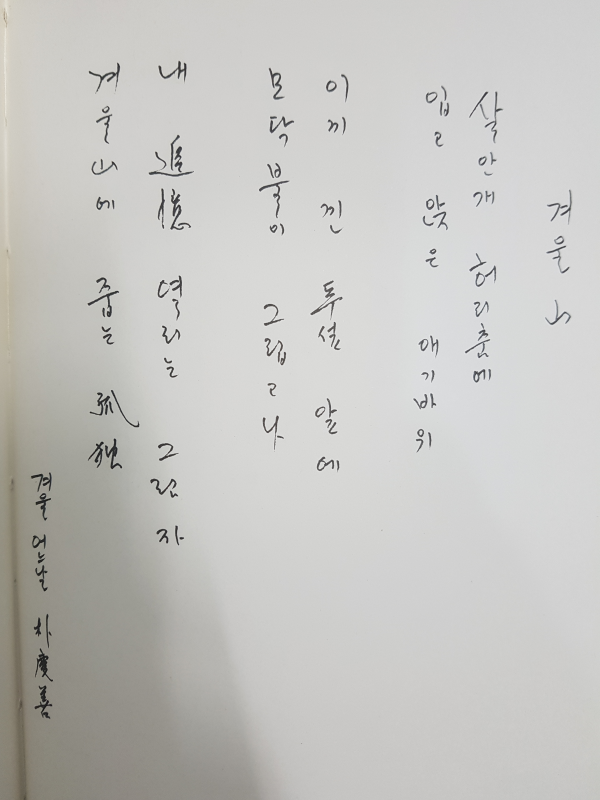 겨울山
살안개 허리춤에
입고 앉은 애기바위
이끼 낀 투성 앞에
모닥불이 그립고나
내 追憶 열리는 그림자
겨울山에 줍는 孤独
겨울 어느날 朴慶善